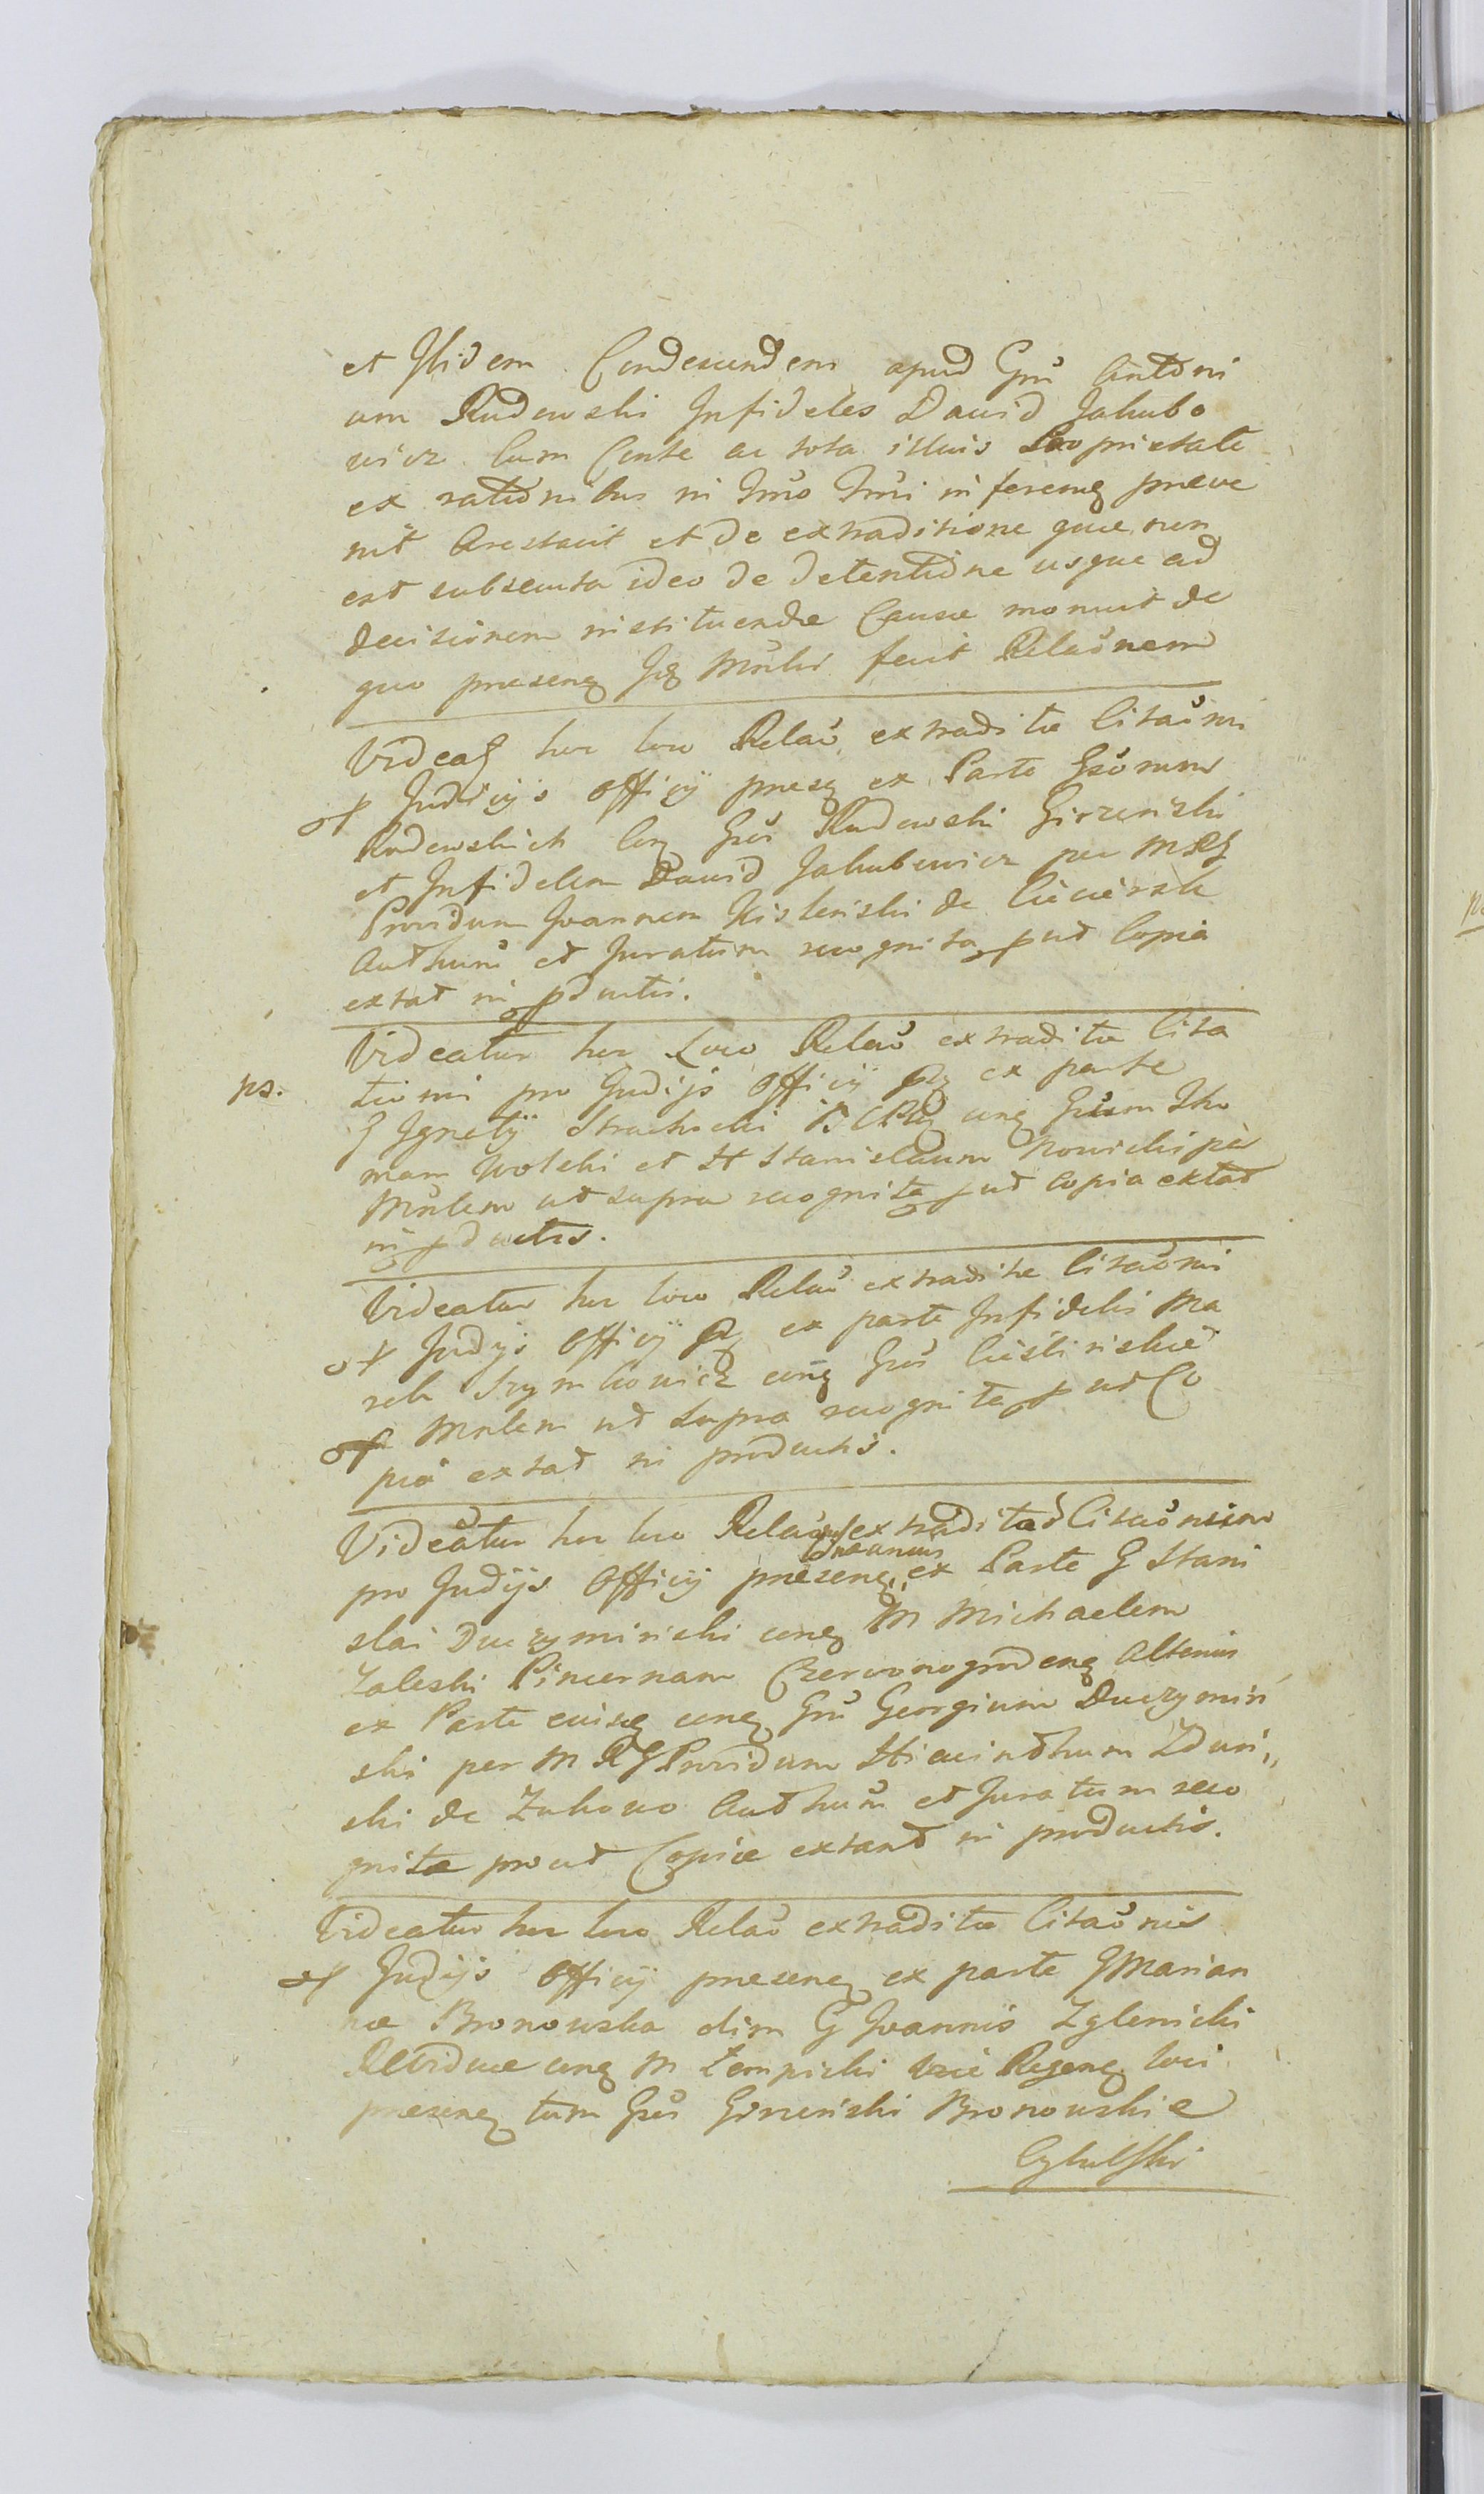 et Ibidem Condescendem apud Gnū Antoni
um Rudowski Infideles Dawid Jakubo
wicz Cum Conte ac tota illius Proprietate
ex rationibus in Trno Trni inferenq praeve
nit Arestavit et de extraditione quae non
est subsecuta ideo de detentione usque ad
decisionem instituendae Causae monuit de
quo praesenq Iq Mnlis fecit Relaōnem
Videaʒ hoc loco Relaō extraditae Citaōnis
p Judicijs Officij praesq ex Parte Gsōrum
Rudowskich Conq Gsos Rudowski Girzenski
et Infidelem Dawid Jakubowicz per MRG
Providum Joannem Kislenski de Cieciersk
Authum et Juratum recognita put Copia
extat in pductis.
Videatur hoc Loco Relaō extraditae Cita
ps.
tionis pro Judijs Officij Pq ex parte
G Ignatij Strachocki B C Plq conq Gsum Tho
mam Wolski et H Stanislaum Nowicki per
Mnlem ut supra recognita put Copia extat
in pductis.
Videatur hoc loco Relaō extraditae Citaōnis
p Judijs Officij Pq ex parte Infidelis Ma
rek Szymkowicz conq Gsos Cieślinskie
p Mnlem ut supra recognita put Co
pia extat in productis.
Videātur hoc loco Relaōnes extraditar Citaōnium
pro Judijs Officij praesenq, ex Parte G Stani
slai Duczyminski conq M Michaelem
Zaleski Pincernam Czerwonogrodenq Alterius
ex Parte eiusq conq Gnū Georgium Duczymin
ski per M R G Providum Hiacinthum Zduń,,
ski de Zukowo Authum et Juratum reco
gnitae prout Copiae extant in productis.
Videatur hoc loco Relaō extraditae Citaōnis
p Judijs Officij praesenq ex parte G Marian
nae Bronowska olim G Joannis Zglenicki
Relictae Viduae conq M Zempicki Vice Regenq loci
praesenq tum Gsos Girzenski Bronowskie